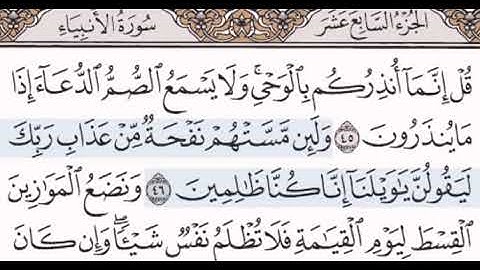 الجزء السابع عشر سورة الأنبياء
قُلْ إِنَّمَآ أُنذِرُكُم بِٱلْوَحْىِ ۚ وَلَا يَسْمَعُ ٱلصُّمُّ ٱلدُّعَآءَ إِذَا
مَا يُنذَرُونَ ٤٥ وَلَئِن مَّسَّتْهُمْ نَفْحَةٌ مِّنْ عَذَابِ رَبِّكَ
لَيَقُولُنَّ يَٰوَيْلَنَآ إِنَّا كُنَّا ظَٰلِمِينَ ٤٦ وَنَضَعُ ٱلْمَوَٰزِينَ
ٱلْقِسْطَ لِيَوْمِ ٱلْقِيَٰمَةِ فَلَا تُظْلَمُ نَفْسٌ شَيْـًٔا ۖ وَإِن كَانَ